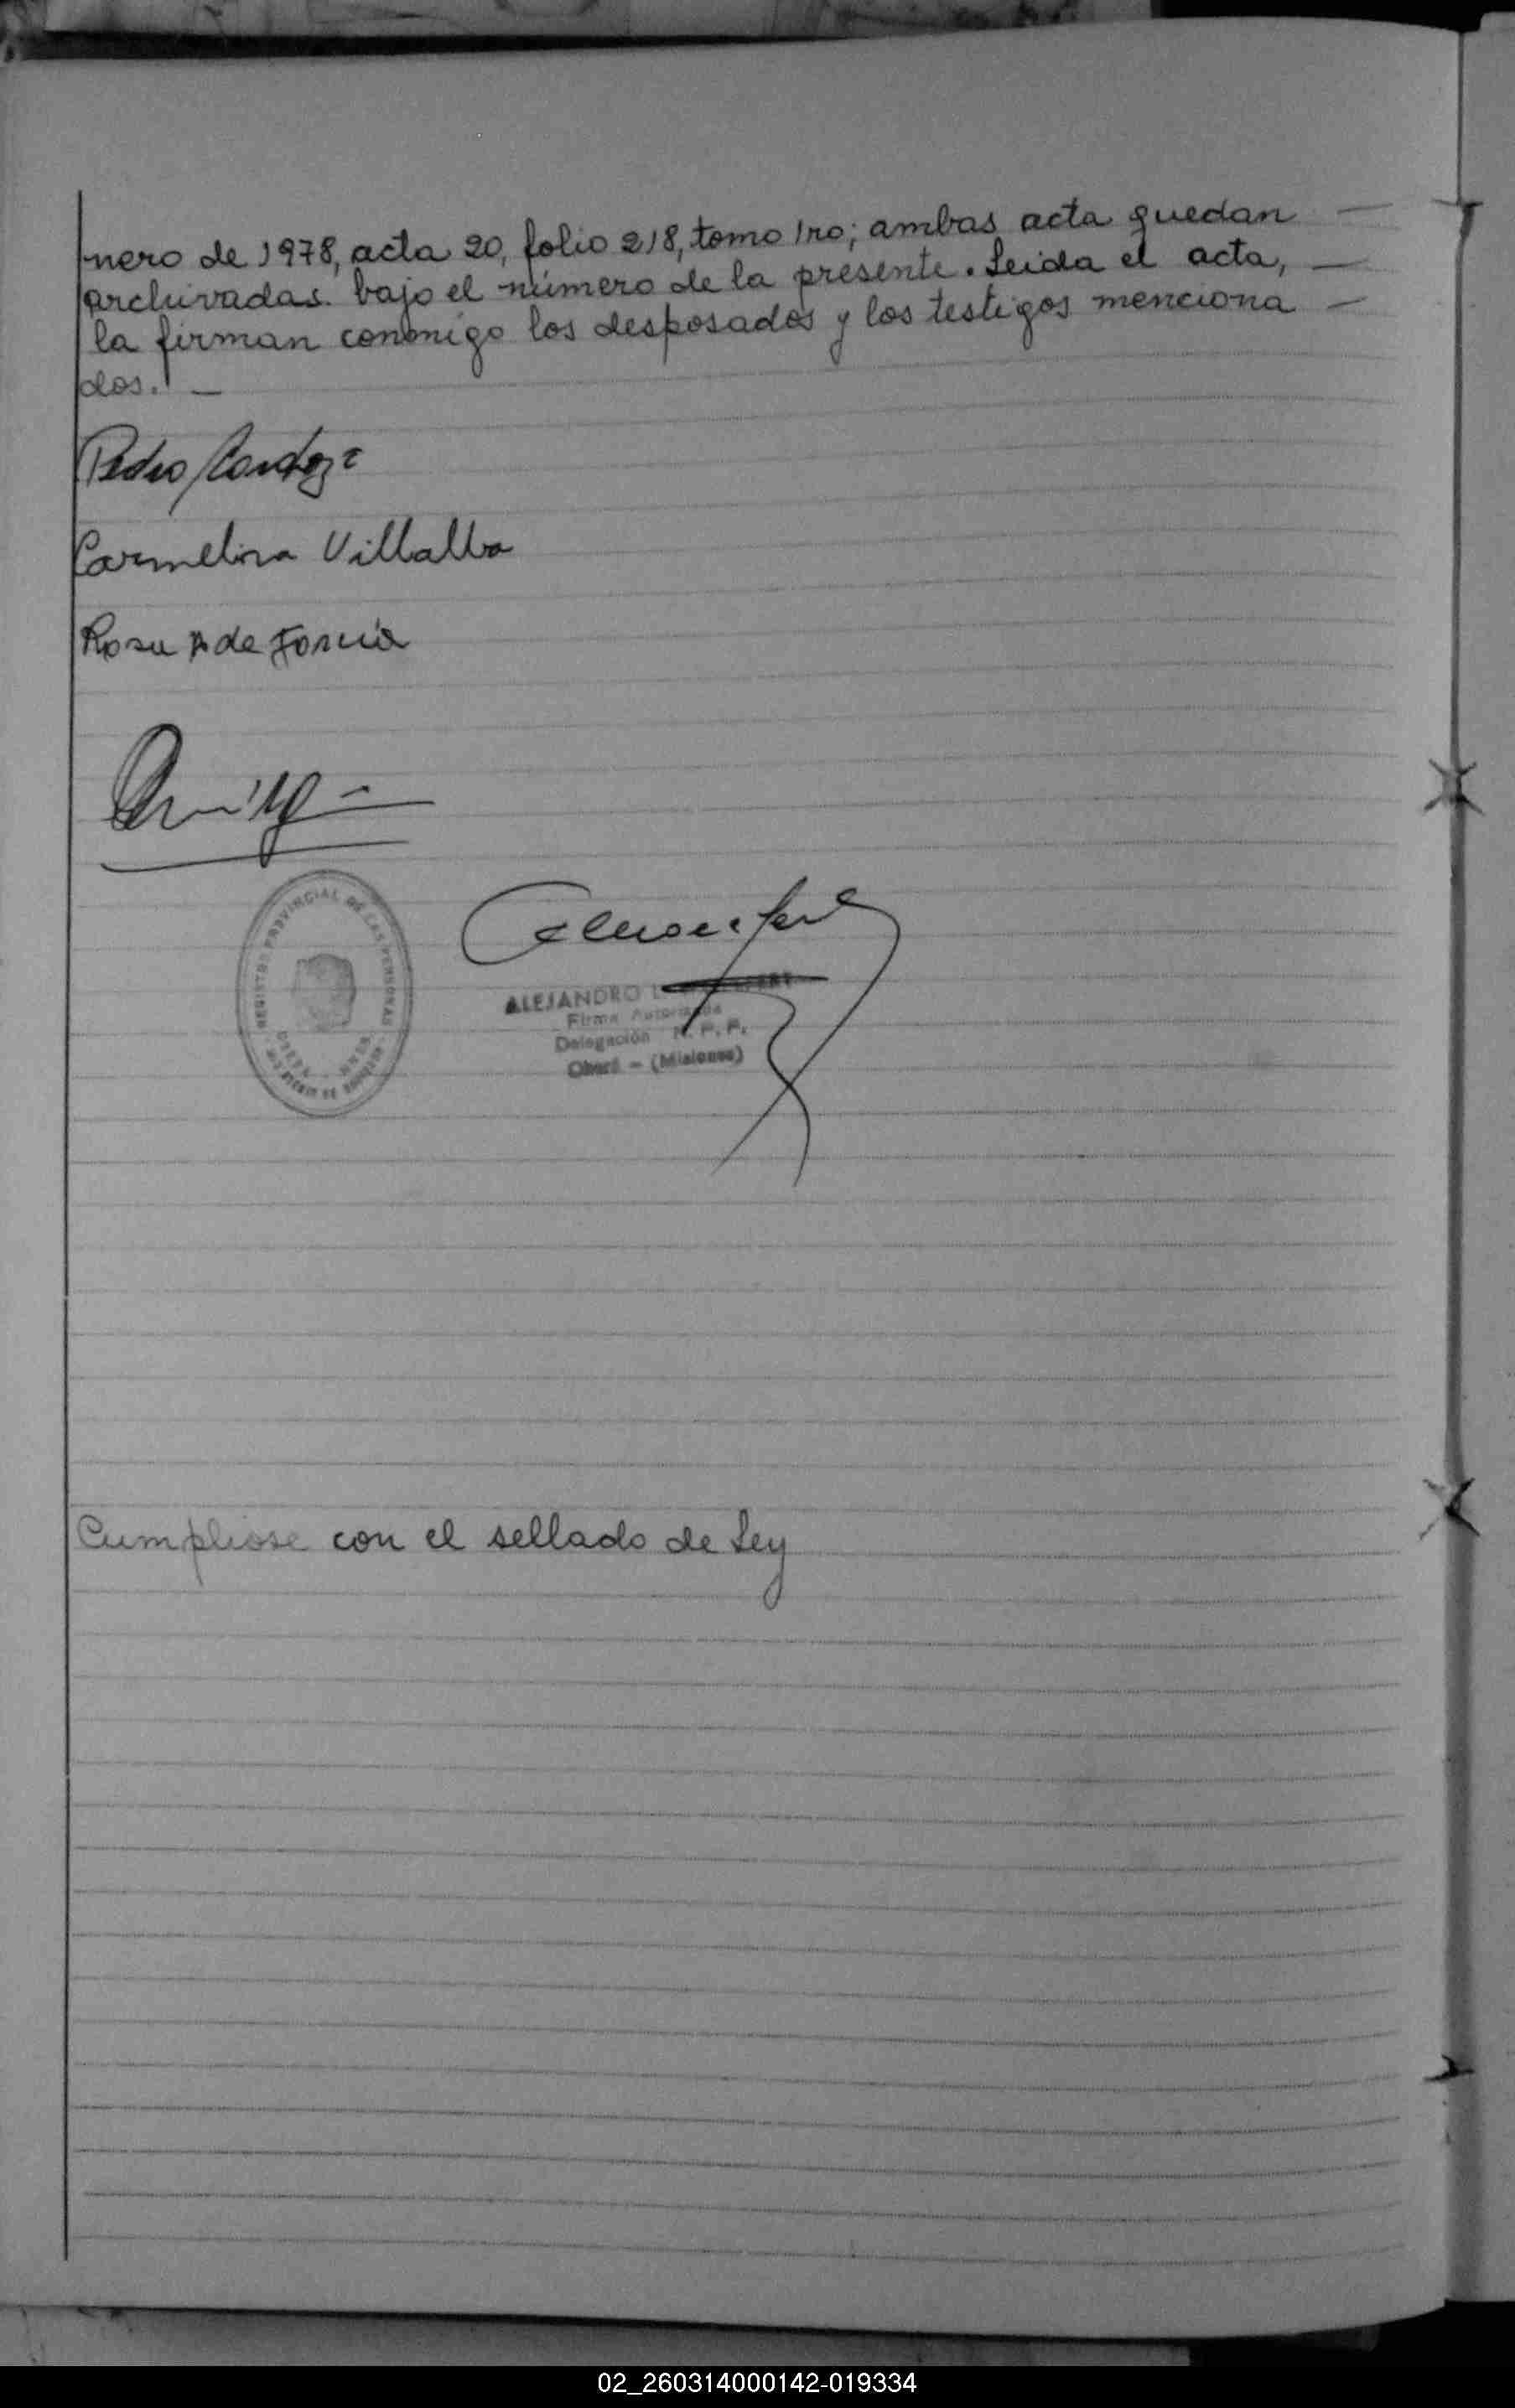 nero de 1978, acta 20, folio 218, tomo 1ro; ambas acta quedan —
archivadas bajo el número de la presente. Leida el acta, —
la firman conmigo los desposados y los testigos menciona —
dos. —
Pedro Cardozo
Carmelina Villalba
Rosa A de
REGISTRO PROVINCIAL DE LAS PERSONAS
ALEJANDRO
Firma Autorizada
Delegación R. P. P.
Oberá - (Misiones)
Cumpliose con el sellado de Ley
02_260314000142-019334